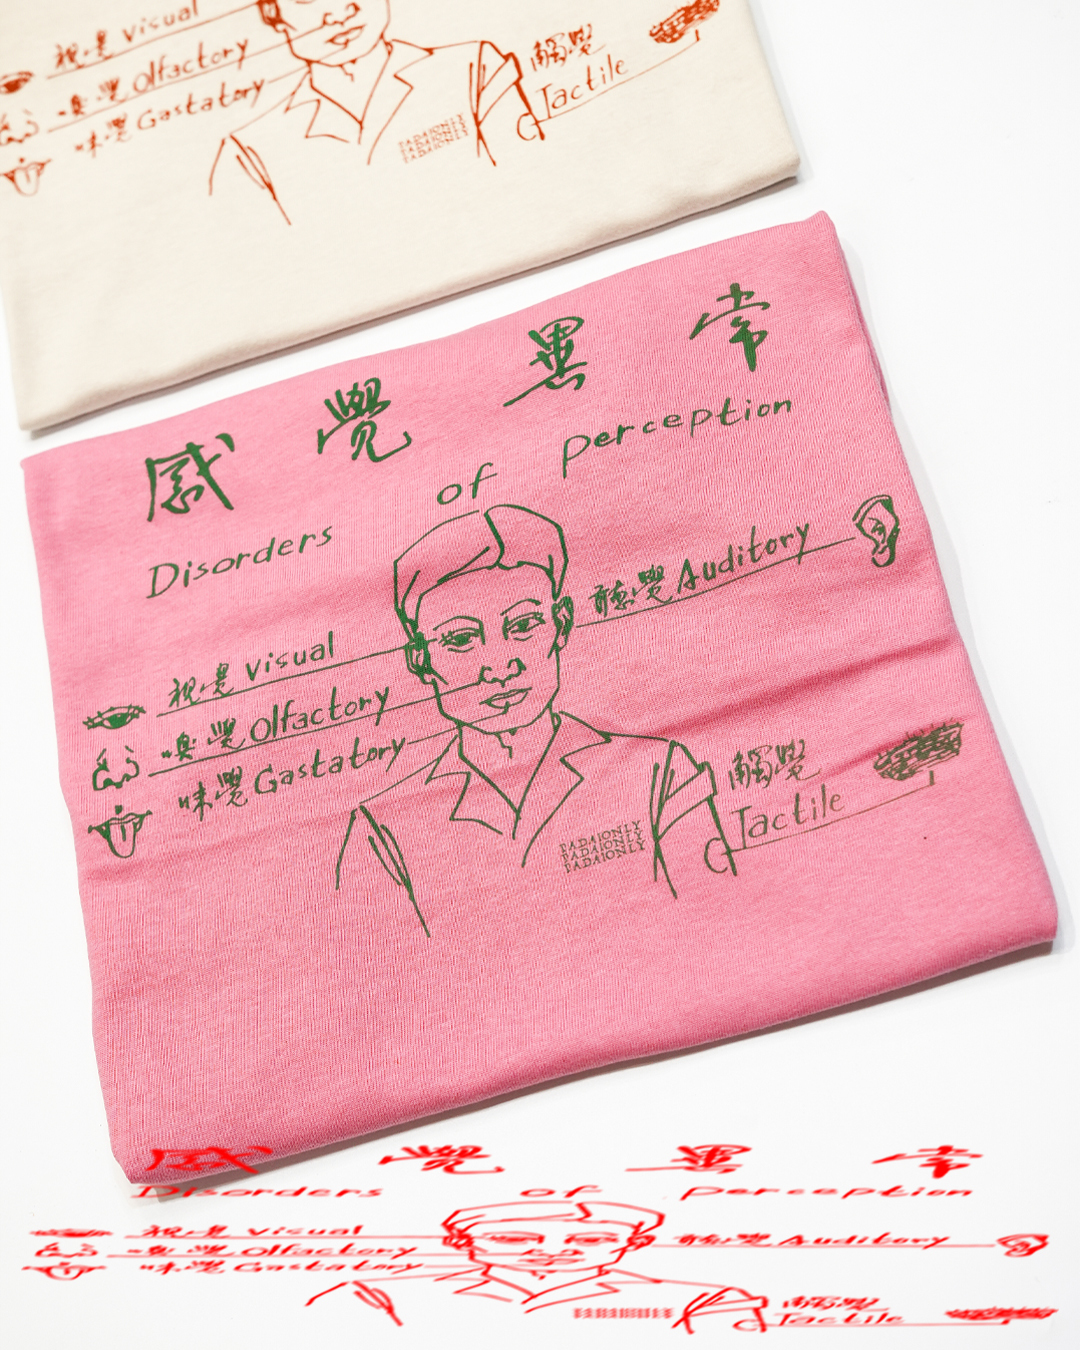 視覺 visual
嗅覺 Olfactory
味覺 Gastatory
觸覺
Tactile
TADAIONLY
TADAIONLY
TADAIONLY
感覺異常
Disorders of perception
聽覺 Auditory
視覺 visual
嗅覺 Olfactory
味覺 Gastatory
觸覺
Tactile
TADAIONLY
TADAIONLY
TADAIONLY
感覺異常
Disorders of perception
視覺 visual
聽覺 Auditory
嗅覺 Olfactory
味覺 Gastatory
觸覺
Tactile